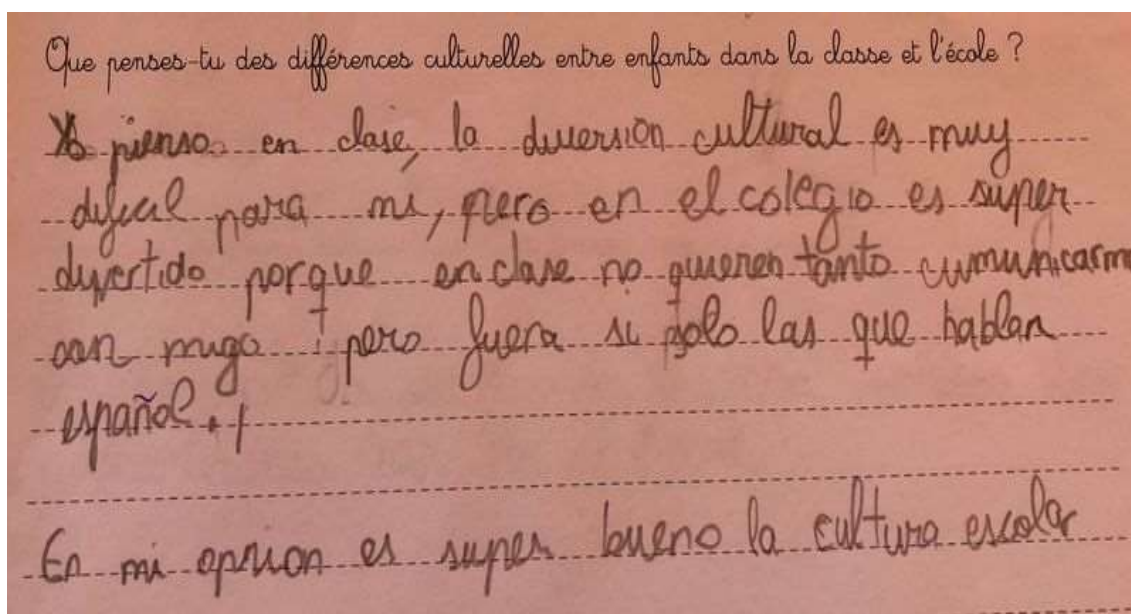 Que penses-tu des différences culturelles entre enfants dans la classe et l'école ?
Yo pienso en clase, la diversion cultural es muy
dificil para mi, pero en el colegio es super
divertido porque en clase no quieren tanto cumunicarme
con migo ! pero fuera si solo las que hablan
español.
En mi opnion es super bueno la cultura escolar